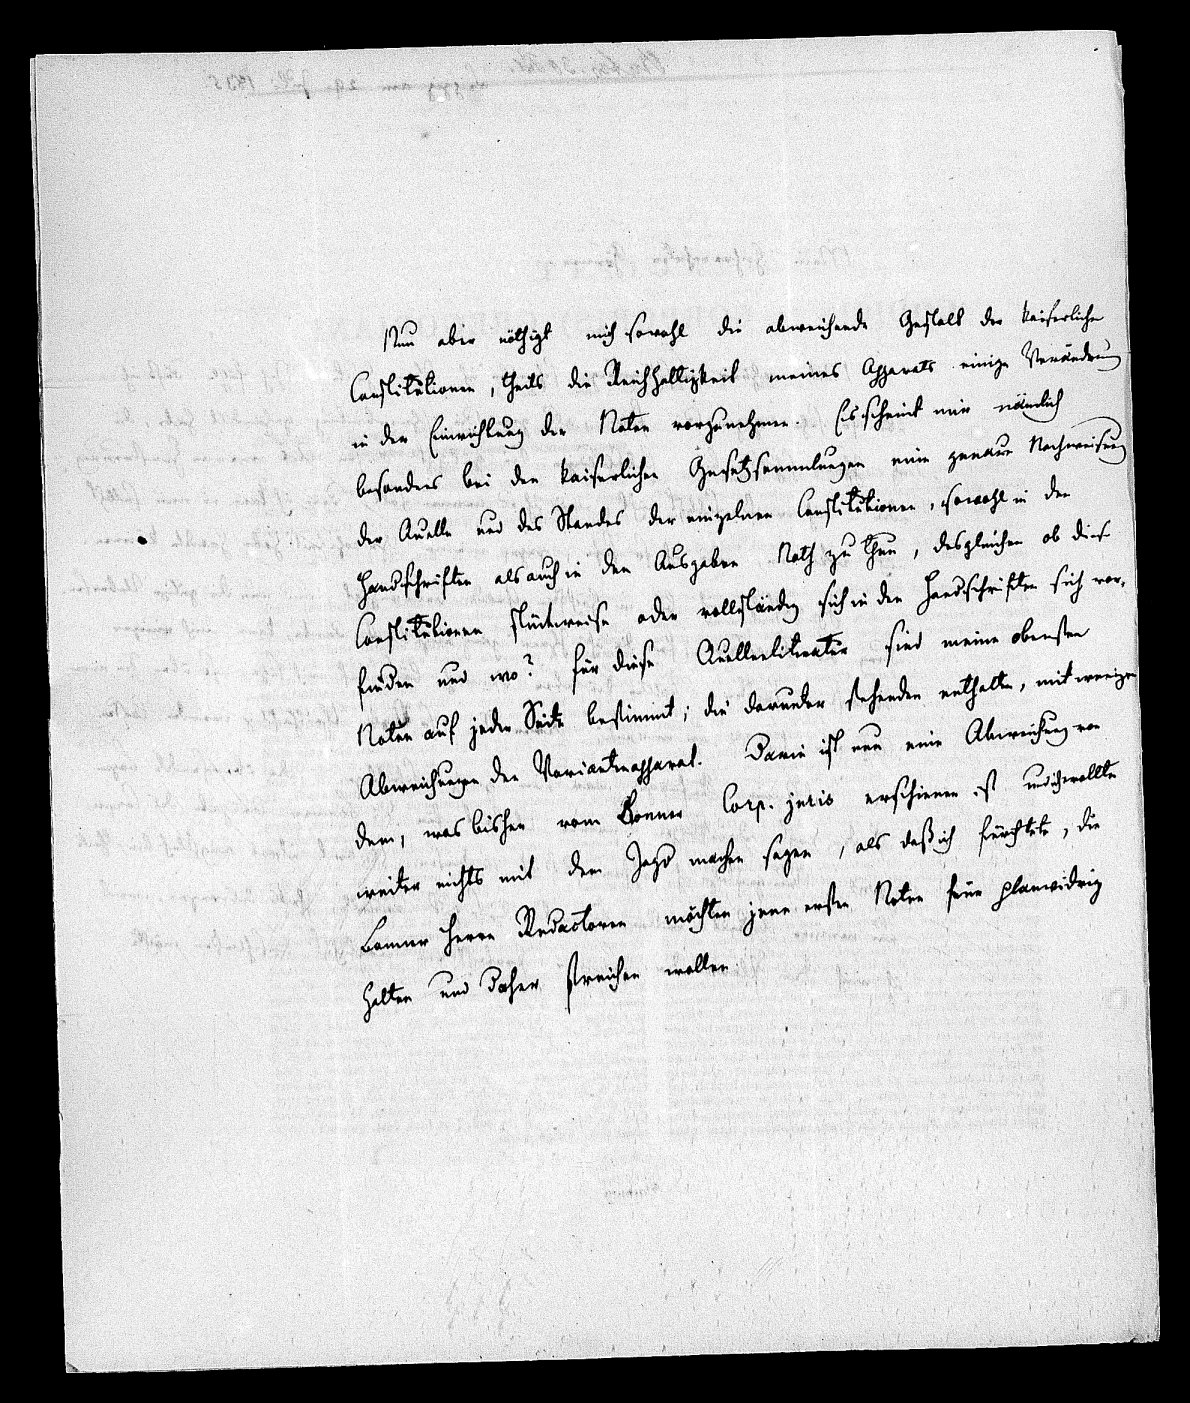 Nun aber nöthigt mich sowohl die abweichende Gestalt der kaiserlichen
Constitutionen, theils die Reichhaltigkeit meines Apparats einige Veränderung
in der Einrichtung der Noten vorzunehmen. Es scheint mir nämlich
besonders bei den kaiserlichen Gesetzsammlungen eine genaue Nachweisung
der Quelle und des Standes der einzelnen Constitutionen, sowohl in den
Handschriften als auch in den Ausgaben Noth zu thun, desgleichen ob diese
Constitutionen stückweise oder vollständig sich in den Handschriften sich vor-
finden und wo? Für diese Quellenliteratur sind meine obersten
Noten auf jeder Seite bestimmt; die darunter stehenden enthalten, mit wenigen
Abweichungen den Variantenapparat. Darin ist nun eine Abweichung von
dem, was bisher vom Bonner Corp. juris erschienen ist und ich wollte
weiter nichts mit dem machen sagen, als daß ich fürchtete, die
Bonner Herrn Redactoren möchten jene ersten Noten für planwidrig
halten und daher streichen wollen.